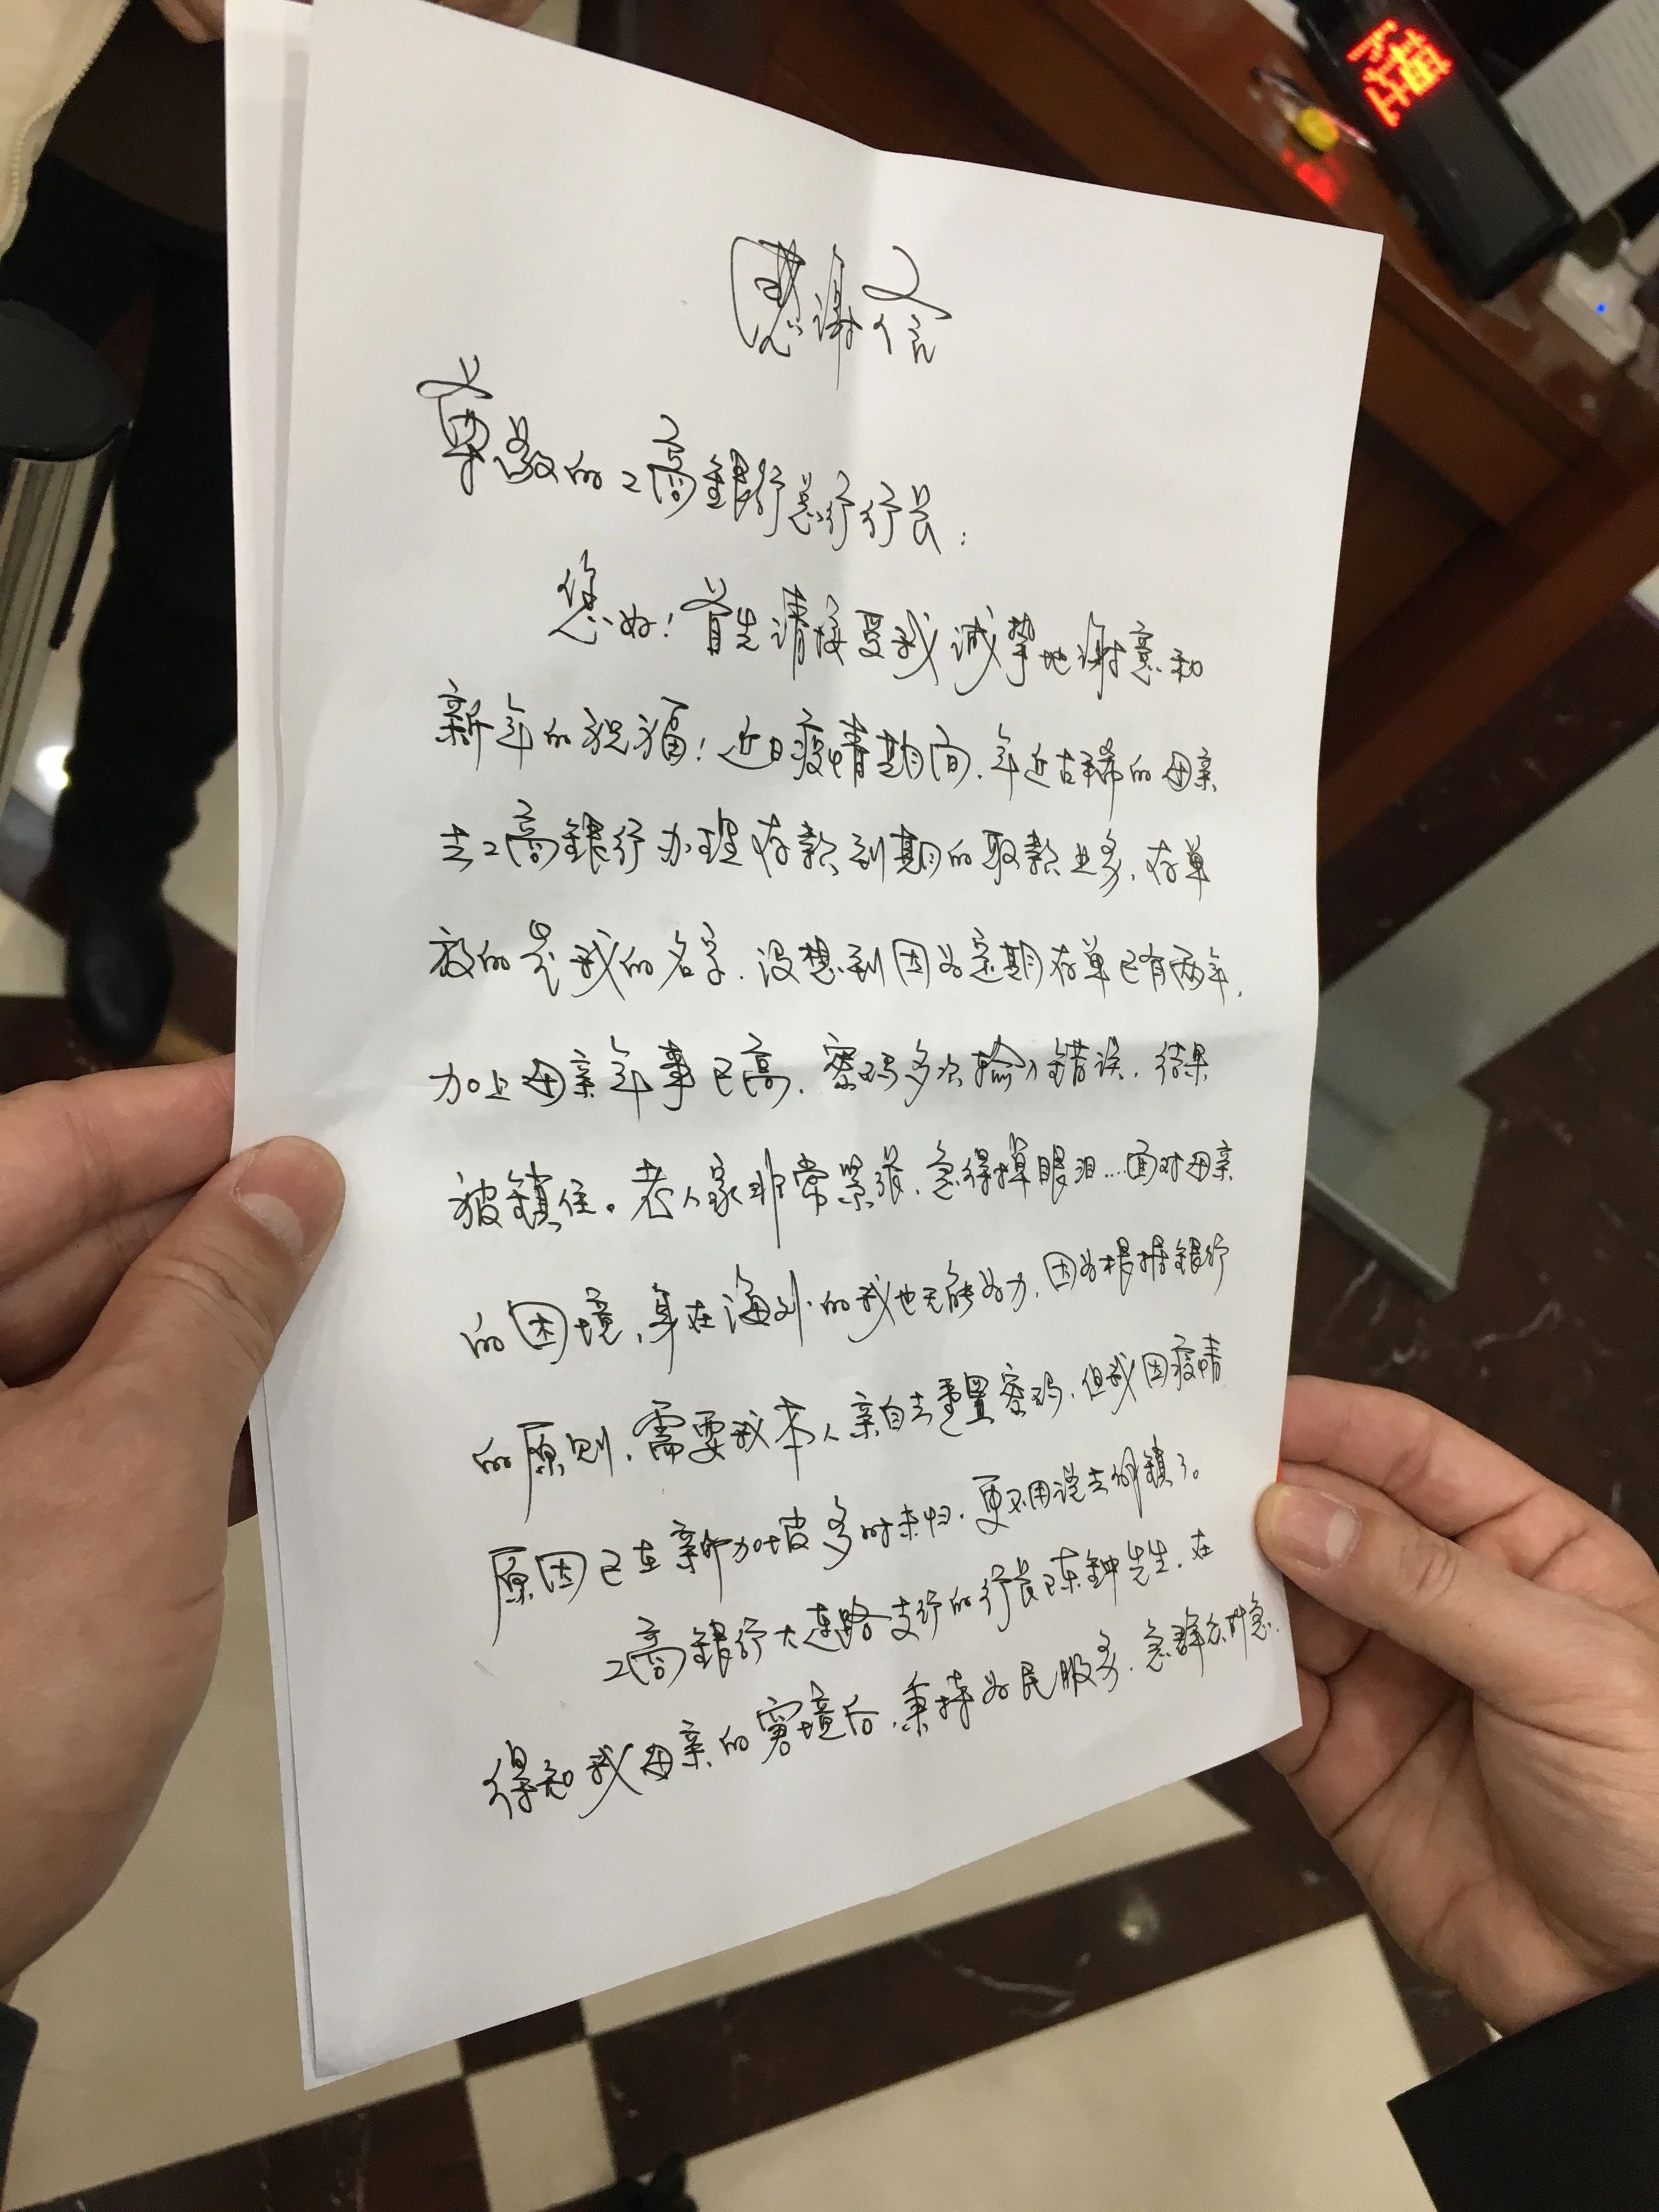 感谢信
尊敬的工商银行总行行长：
您好！首先请接受我诚挚地谢意和
新年的祝福！近日疫情期间，年近古稀的母亲
去工商银行办理存款到期的取款业务，存单
放的是我的名字，没想到因为定期存单已有两年，
加上母亲年事已高，密码多次输入错误，结果
被锁住。老人家非常紧张，急得掉眼泪…面对母亲
的困境，身在海外的我也无能为力，因为根据银行
的原则，需要我本人亲自去重置密码，但我因疫情
原因已在新加坡多时未归，更不用说去解锁了。
工商银行大连路支行的行长陈钟先生，在
得知我母亲的窘境后，秉持为民服务，急群众所急，